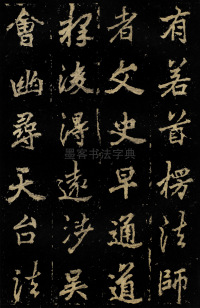 有若首楞法師
者文史早通道
釋後得遠涉吳
會幽尋天台法
墨客书法字典